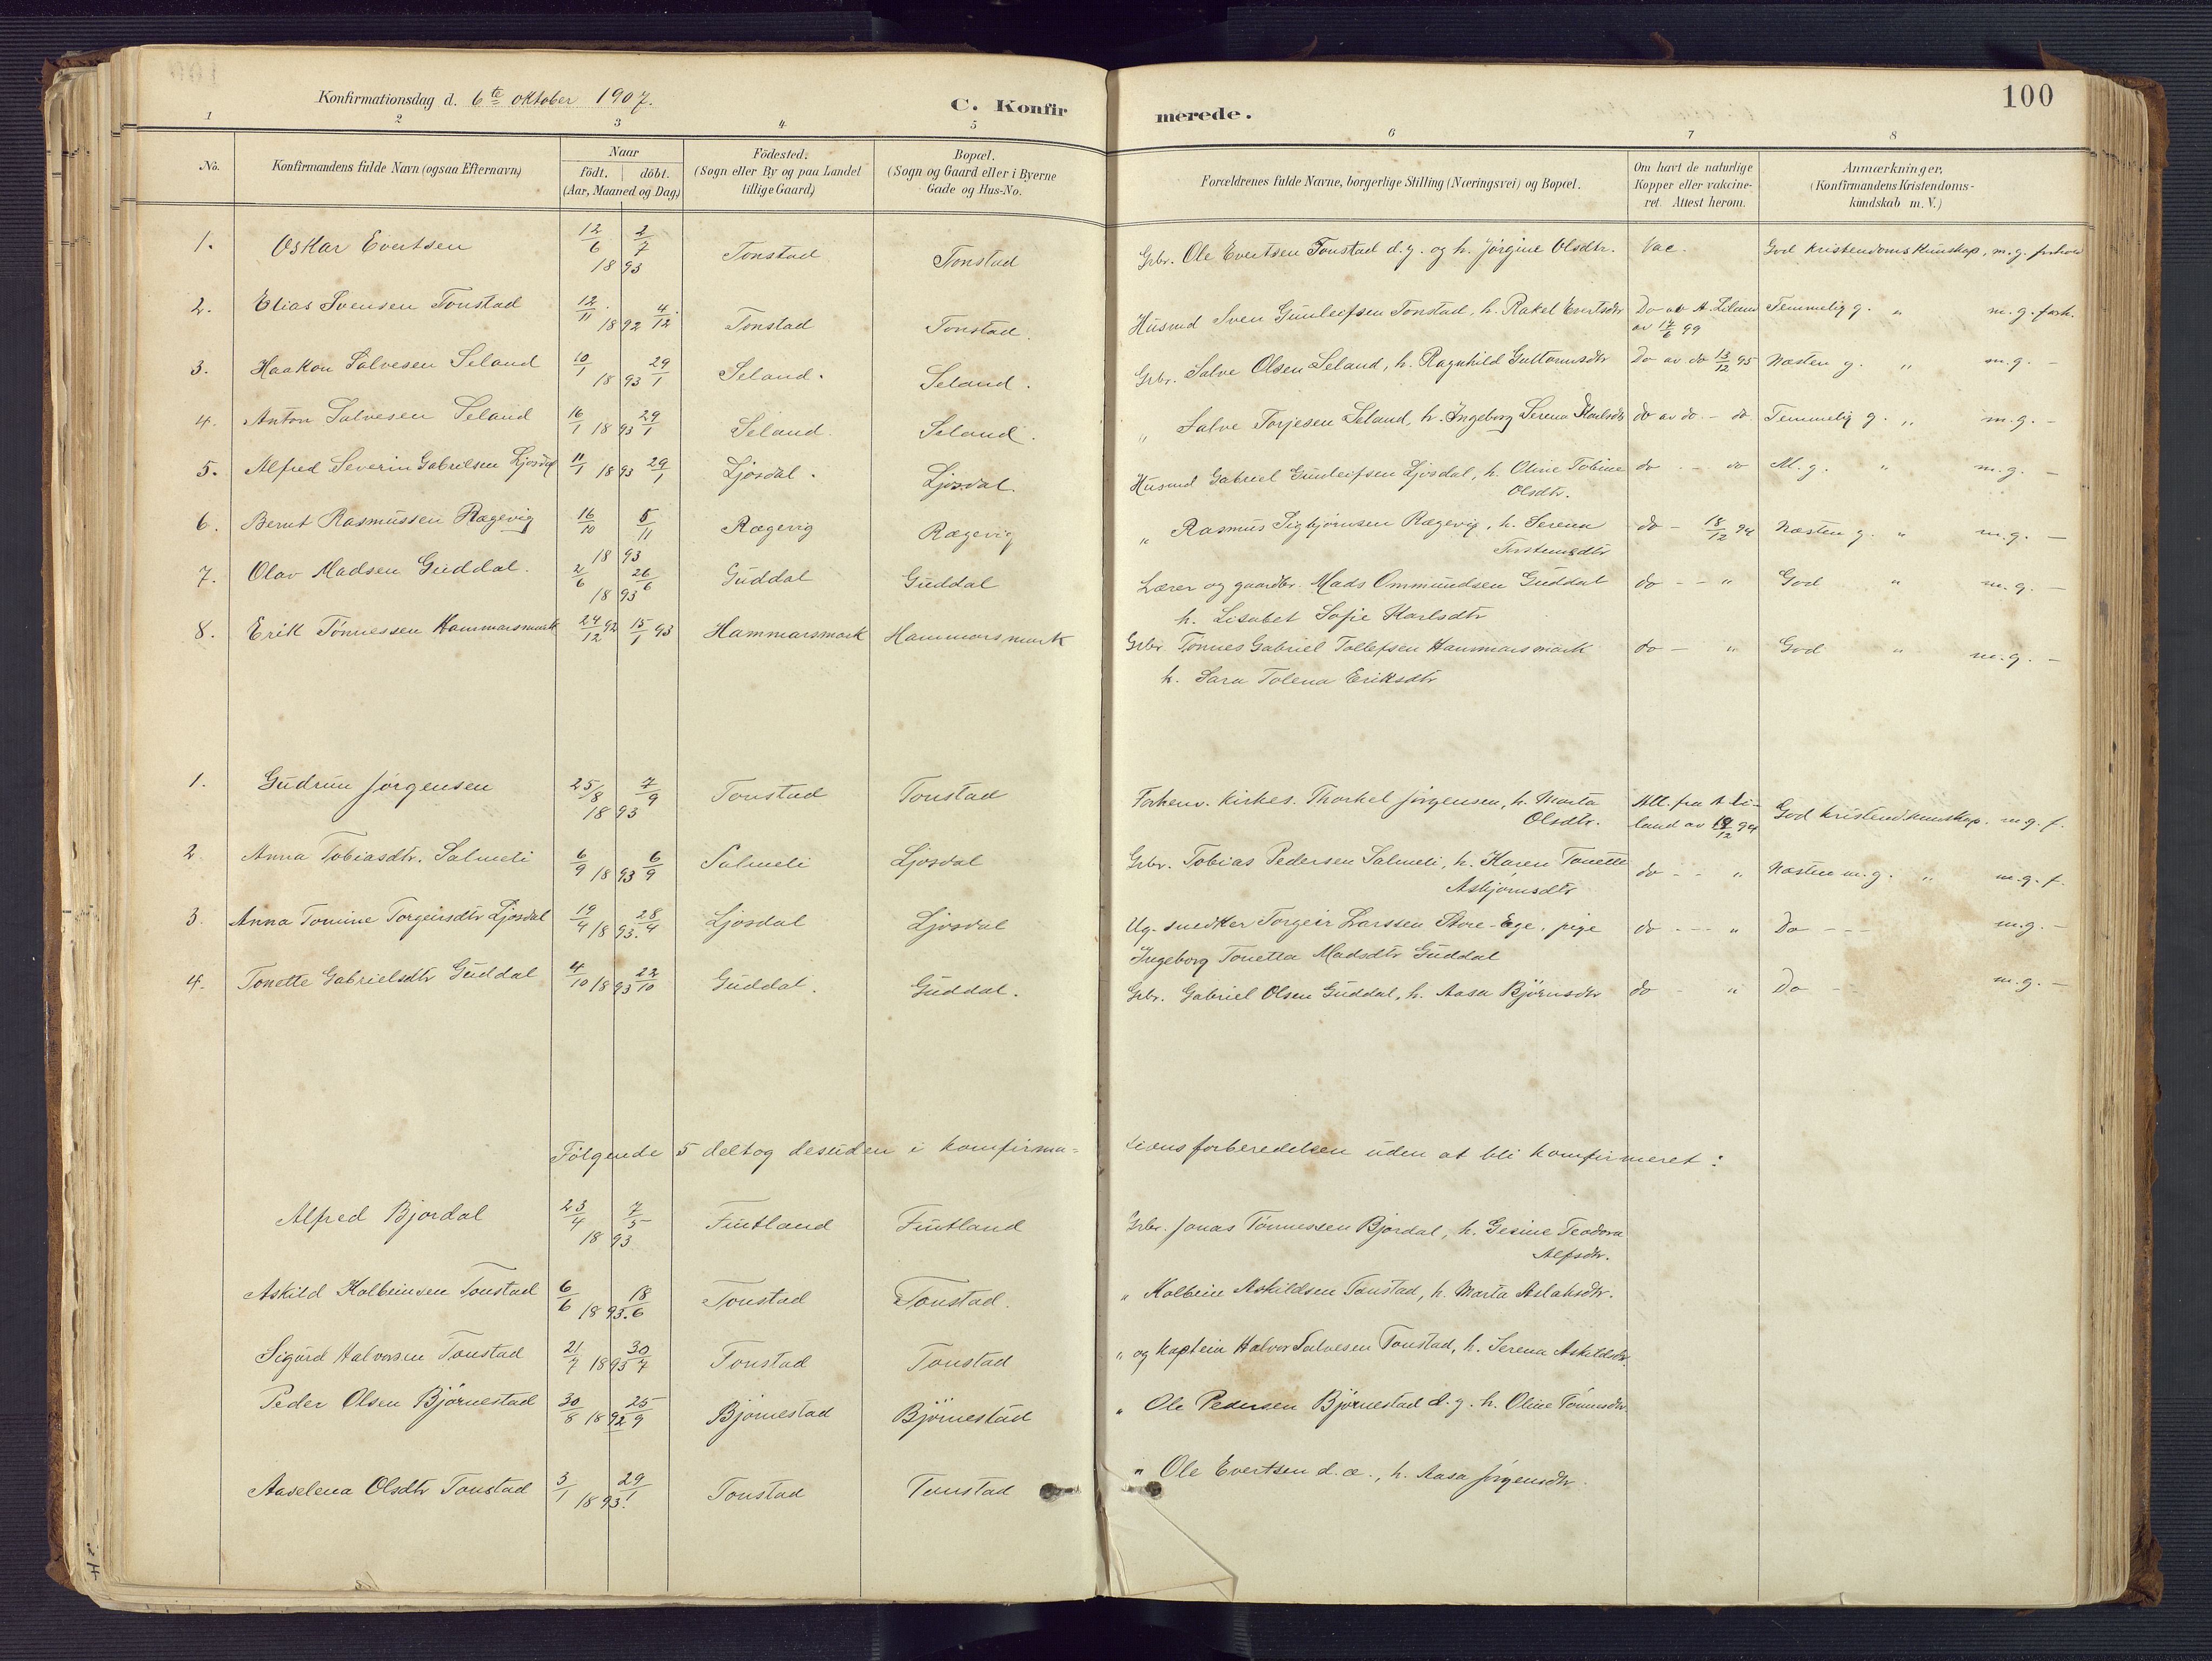 Konfirmationsdag d. 6te oktober 1907. C. Konfirmerede. 100
1 2 3 4 5 6 7 8
No. Konfirmandens fulde Navn (ogsaa Efternavn) Naar födt. döbt. (Aar, Maaned og Dag) Födested. (Sogn eller By og paa Landet tillige Gaard) Bopæl. (Sogn og Gaard eller i Byerne Gade og Hus-No. Forældrenes fulde Navne, borgerlige Stilling (Næringsvei) og Bopæl. Om havt de naturlige Kopper eller vakcineret. Attest herom. Anmærkninger. (Konfirmandens Kristendomskundskab m. V.)
1. Oskar Evertsen 12/6 2/7 1893 Tonstad Tonstad Gbr. Ole Evertsen Tonstad d.y. og h. Jørgine Olsdtr. Vac. God kristendomskunskap, m.g. forhold
2. Elias Svensen Tonstad 12/11 1892 4/12 Tonstad Tonstad. Husmd Sven Gunleifsen Tonstad, h. Rakel Evertsdtr Do av A. Liland av 14/6 99 Temmelig g. " m.g. forh.
3. Haakon Salvesen Seland 10/1 1893 29/1 Seland. Seland. Gbr. Salve Olsen Seland, h. Ragnhild Guttormsdtr Do av do 13/12 95 Næsten g. " m.g. -
4. Anton Salvesen Seland 16/1 1893 29/1 Seland. Seland. " Salve Torjesen Seland, h. Ingeborg Serena Karlsdtr do av do - do Temmelig g. " m.g. -
5. Alfred Severin Gabrielsen Ljosdal 11/1 1893 29/1 Ljosdal. Ljosdal. Husmd Gabriel Gunleifsen Ljosdal, h. Oline Tobine Olsdtr. do - - do M.g. " m.g. -
6. Bernt Rasmussen Rægevig 16/10 5/11 1893 Rægevig Rægevig " Rasmus Sigbjørnsen Rægevig, h. Serena Torstensdtr do - 18/12 94 Næsten g. " m.g. -
7. Olav Madsen Guddal. 2/6 26/6 1893 Guddal Guddal Lærer og gaardbr. Mads Ommundsen Guddal h. Lisabet Sofie Karlsdtr do - - " God " m.g. -
8. Erik Tönnessen Hammarsmark 24/12 92 15/1 93 Hammarsmark Hammarsmark Gbr. Tönnes Gabriel Tollefsen Hammarsmark h. Sara Tolena Eriksdtr do - " God " m.g. -
1. Gudrun Jørgensen 25/8 7/9 1893 Tonstad Tonstad Forhenv. kirkes. Thorkel Jørgensen, h. Marta Olsdtr. Att. fra A Liland av 18/12 94 God kristendkunskap. m.g. f.
2. Anna Tobiasdtr. Salmeli 6/9 1893 6/9 Salmeli Ljosdal Gbr. Tobias Pedersen Salmeli, h. Karen Tonette Asbjørnsdtr do - - " Næsten m.g. " m.g. f.
3. Anna Tomine Torgeirsdtr Ljosdal 19/4 1893. 28/4 Ljosdal Ljosdal Ug. snedker Torgeir Larssen Store-Ege, pige Ingeborg Tonetta Madsdtr Guddal do - - - " Do - - - m.g. -
4. Tonette Gabrielsdtr Guddal 4/10 1893 22/10 Guddal. Guddal. Gbr. Gabriel Olsen Guddal, h. Aasa Björnsdtr do - " Do - m.g. -
Følgende 5 deltog desuden i konfirmationsforberedelsen uden at bli konfirmeret:
Alfred Bjordal 23/4 7/5 1893 Fintland Fintland Gbr. Jonas Tönnessen Bjordal, h. Gesine Teodora Alfsdtr.
Askild Kolbeinsen Tonstad 6/6 1893. 18/6 Tonstad Tonstad. " Kolbein Askildsen Tonstad, h. Marta Aslaksdtr.
Sigurd Halvorsen Tonstad 21/7 1893 30/7 Tonstad Tonstad " og kaptein Halvor Salvesen Tonstad, h. Serena Askildsdtr.
Peder Olsen Björnestad 30/8 1892 25/9 Bjørnestad Björnestad " Ole Pedersen Björnestad d.y. h. Oline Tönnesdtr.
Aaselena Olsdtr Tonstad 3/1 1893. 29/1 Tonstad Tonstad " Ole Evertsen d.æ., h. Aasa Jörgensdtr.